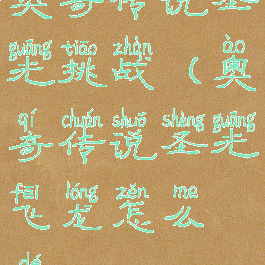 奥奇传说圣
guāng tiāo zhàn ào
光挑战(奥
qí chuán shuō shèng guāng
奇传说圣光
fēi lóng zěn me
飞龙怎么
dé